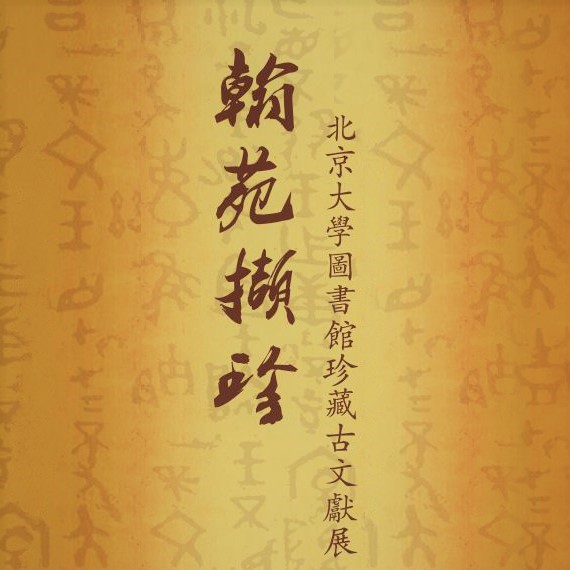 翰苑擷珍
北京大學圖書館珍藏古文獻展